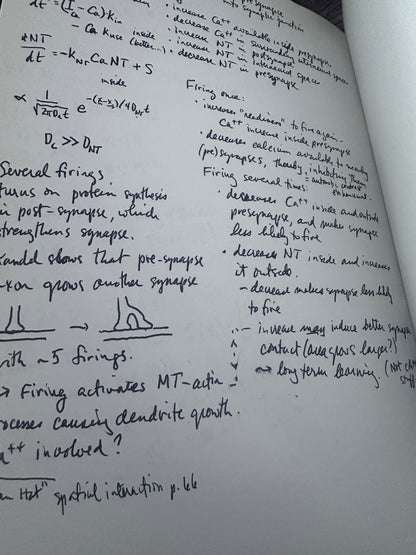 dt = (I_Ca − Ca)k_in
− Ca k_use inside (better...)
dNT/dt = −k_NT Ca NT + S
inside
∝ 1/√(2πD_c t) e^−(x−x₀)²/4D_NT t
D_c >> D_NT
Several firings
turns on protein synthesis
in post-synapse, which
strengthens synapse.
Kandel shows that pre-synapse
axon grows another synapse
→
with ~5 firings.
→ Firing activates MT-actin
processes causing dendrite growth.
Ca++ involved?
spatial interaction p. 66
into synaptic junction
• increase Ca++ available inside presynapse
• decrease Ca++ in surrounding intraneural space
• increase NT in postsynapse
• increase NT in intraneural space
• decrease NT in presynapse
Firing once:
• increases "readiness" to fire again.
Ca++ increase inside presynapse
• decreases calcium available to nearby
(pre)synapses, thereby, inhibiting them
= automatic control
Firing several times:
• decreases Ca++ inside and outside
presynapse, and makes synapse
less likely to fire
• decreases NT inside and increases
it outside.
– decrease makes synapse less likely
to fire
– increase may induce better synapse
contact (area grows larger?)
⇒ long term learning. (Not